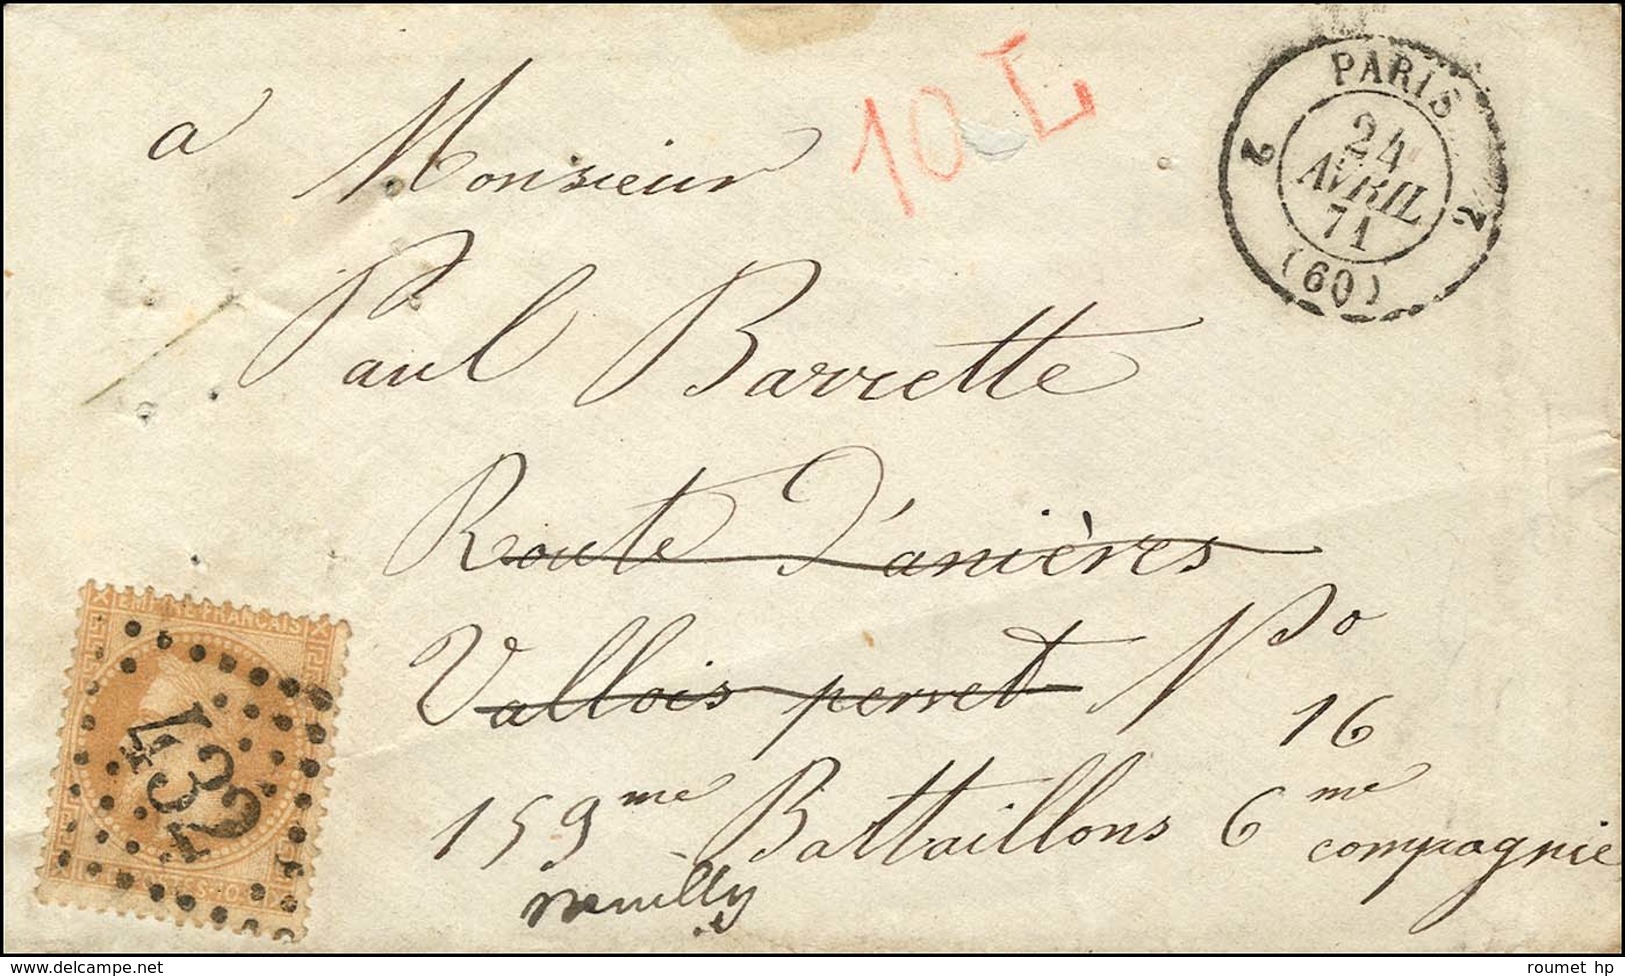 a Monsieur
10 L
PARIS
2 24 2
AVRIL
71
(60)
Paul Barrette
Route d'anières
Vallois perret No
16
159me Battaillons 6me
compagnie
neuilly
EMPIRE FRANÇAIS
432
delcampe.net
roumet_hp